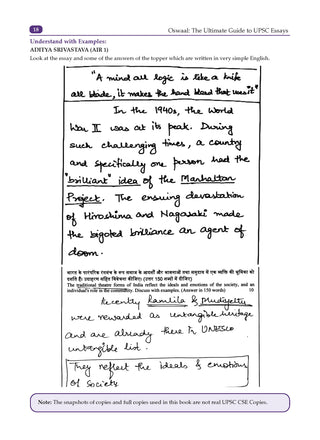 18
Oswaal: The Ultimate Guide to UPSC Essays
Understand with Examples:
ADITYA SRIVASTAVA (AIR 1)
Look at the essay and some of the answers of the topper which are written in very simple English.
"A mind all logic is like a knife
all blade, it makes the hand bleed that uses it"
In the 1940s, the World
War II was at its peak. During
such challenging times, a country
and specifically one person had the
"brilliant" idea of the Manhattan
Project. The ensuing devastation
of Hiroshima and Nagasaki made
the bigoted brilliance an agent of
doom.
भारत के पारंपरिक रंगमंच के रूप समाज के आदर्शों और भावनाओं तथा समुदाय में एक व्यक्ति की भूमिका को
दर्शाते हैं। उदाहरण सहित विवेचना कीजिए। (उत्तर 150 शब्दों में दीजिए)
The traditional theatre forms of India reflect the ideals and emotions of the society, and an
individual's role in the community. Discuss with examples. (Answer in 150 words) 10
Recently Ramlila &
were rewarded as intangible heritage
and are already there in UNESCO
intangible list.
They reflect the ideals & emotions
of society
Note: The snapshots of copies and full copies used in this book are not real UPSC CSE Copies.